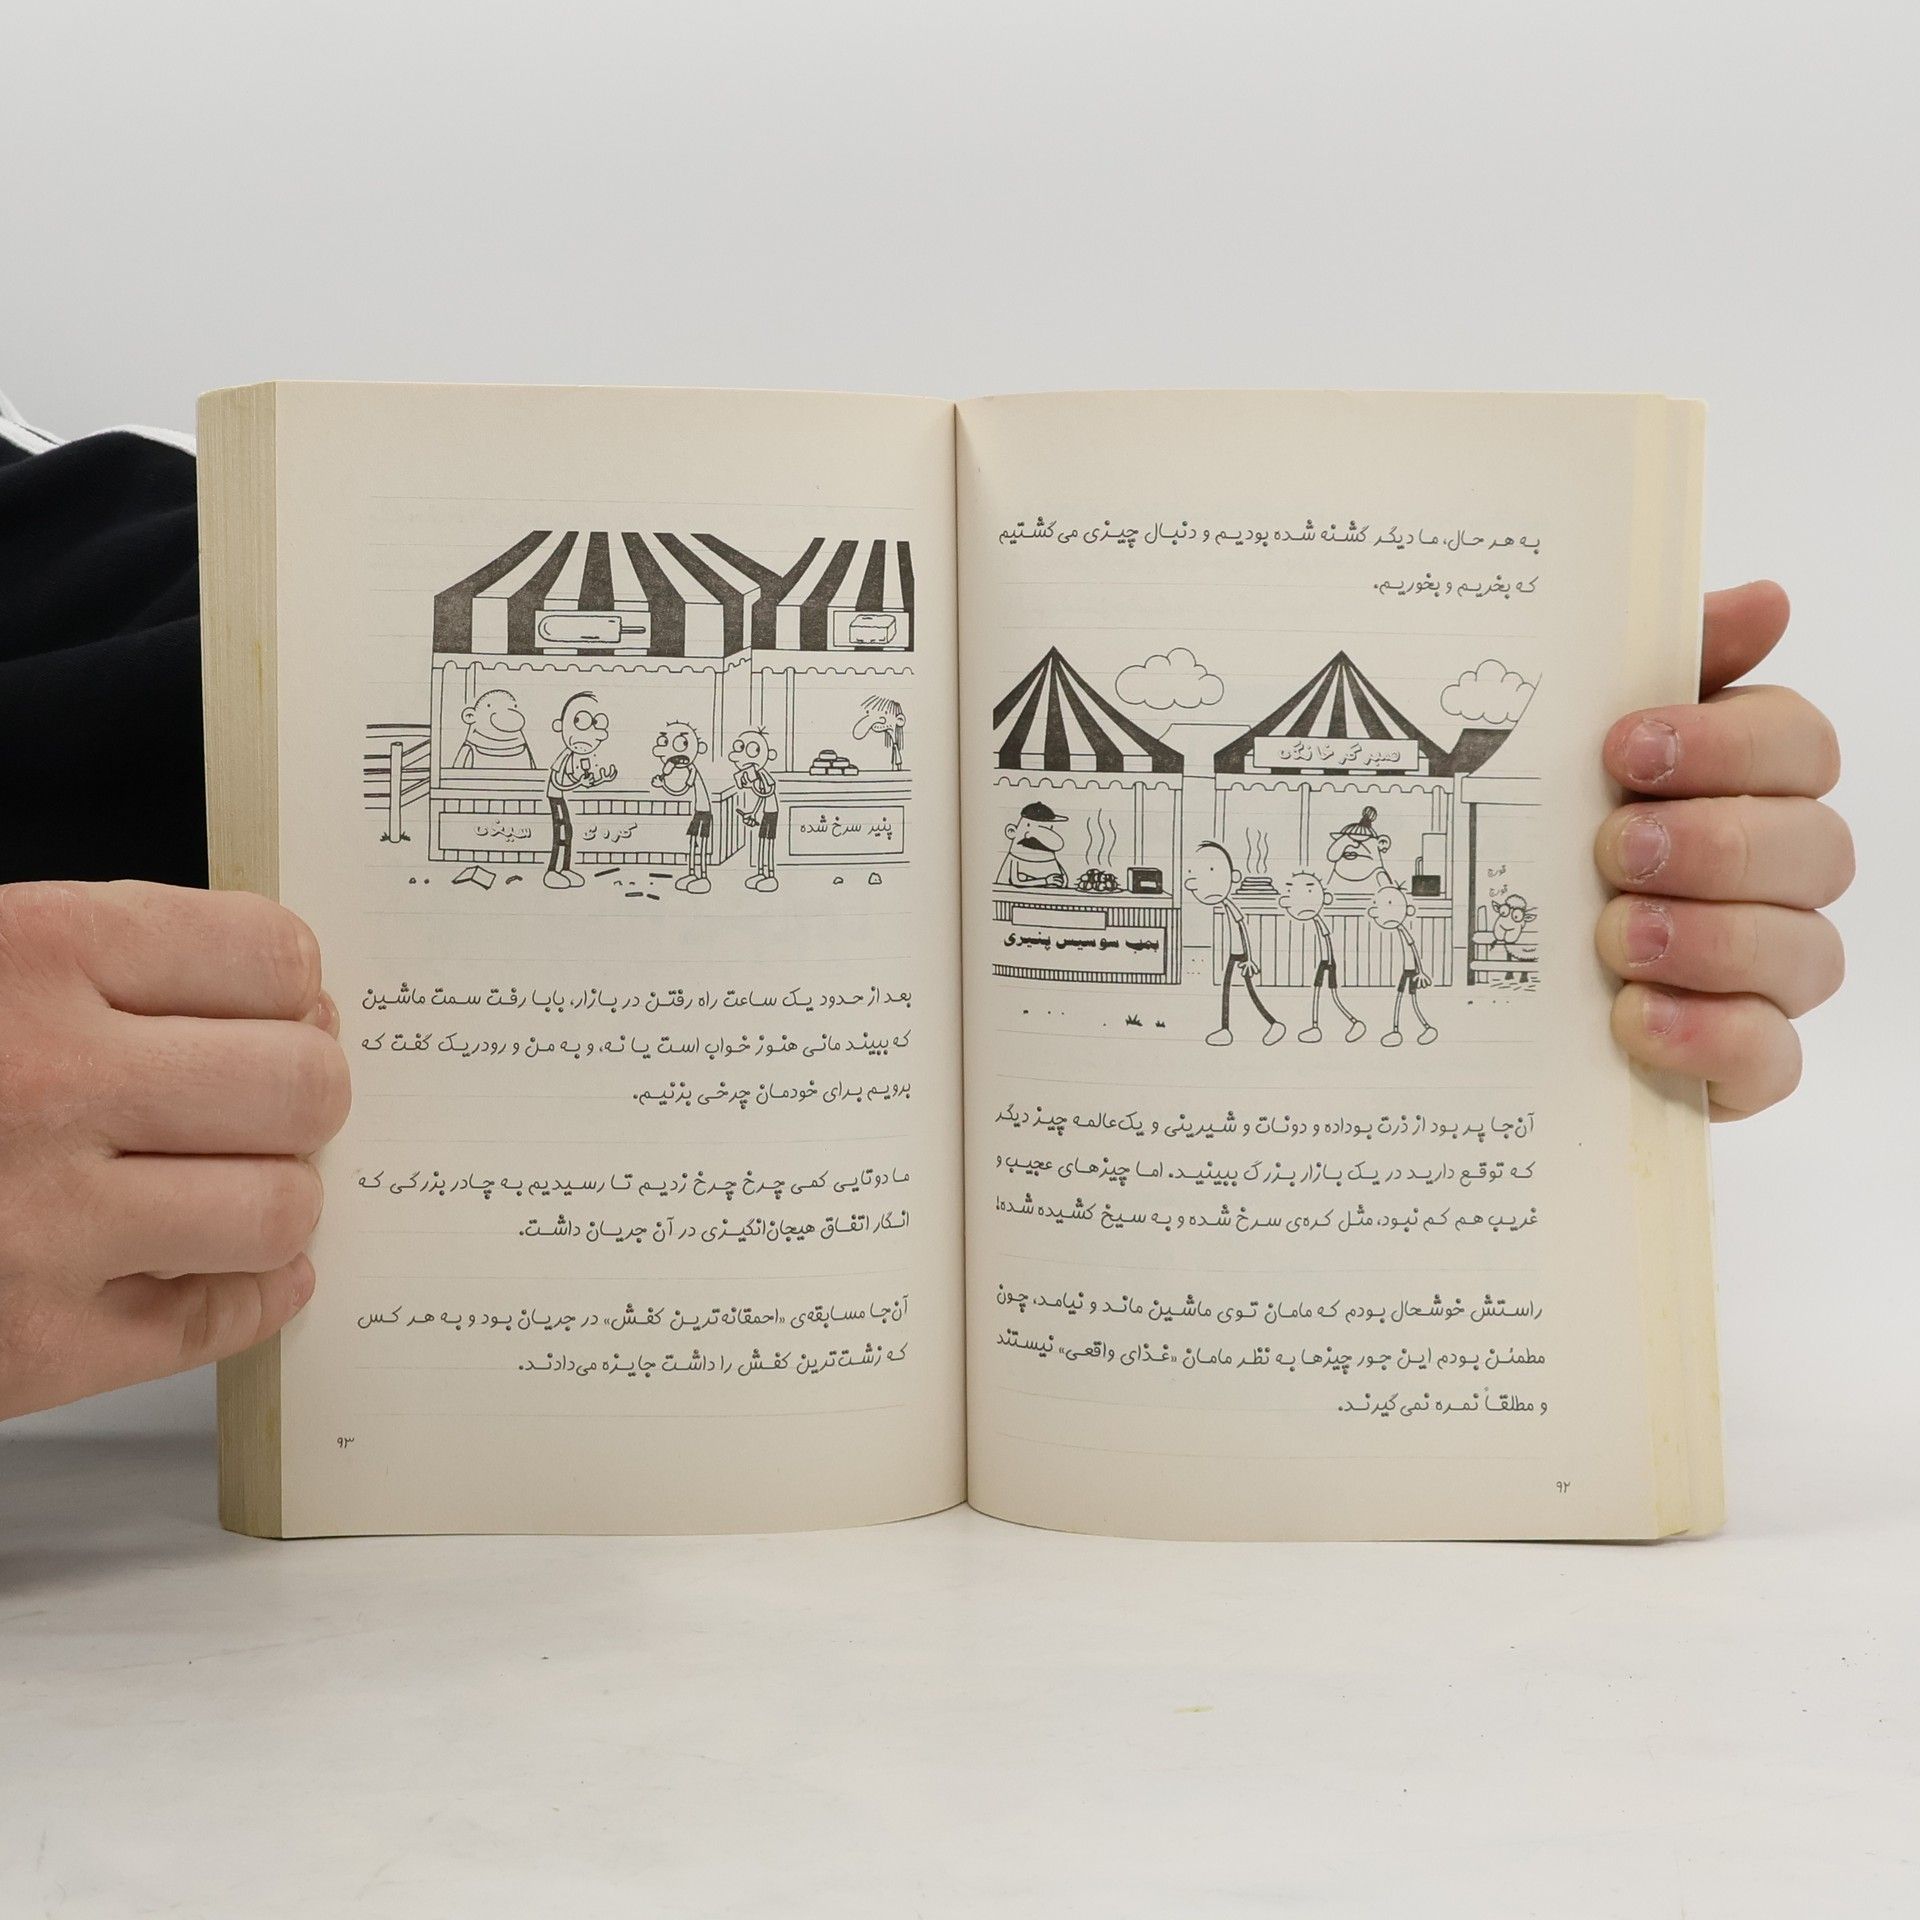 به هر حال، ما دیگر گشنه شده بودیم و دنبال چیزی می‌گشتیم
که بخریم و بخوریم.
همبرگر خانگی
قورچ
قورچ
بمب سوسیس پنیری
آن‌جا پر بود از ذرت بوداده و دونات و شیرینی و یک‌عالمه چیز دیگر
که توقع دارید در یک بازار بزرگ ببینید. اما چیزهای عجیب و
غریب هم کم نبود، مثل کره‌ی سرخ شده و به سیخ کشیده شده!
راستش خوشحال بودم که مامان توی ماشین ماند و نیامد، چون
مطمئن بودم این جور چیزها به نظر مامان «غذای واقعی» نیستند
و مطلقاً نمره نمی‌گیرند.
۹۲
کره‌ی سیخی
پنیر سرخ شده
بعد از حدود یک ساعت راه رفتن در بازار، بابا رفت سمت ماشین
که ببیند مانی هنوز خواب است یا نه، و به من و رودریک گفت که
برویم برای خودمان چرخی بزنیم.
ما دوتایی کمی چرخ چرخ زدیم تا رسیدیم به چادر بزرگی که
انگار اتفاق هیجان‌انگیزی در آن جریان داشت.
آن‌جا مسابقه‌ی «احمقانه‌ترین کفش» در جریان بود و به هر کس
که زشت‌ترین کفش را داشت جایزه می‌دادند.
۹۳